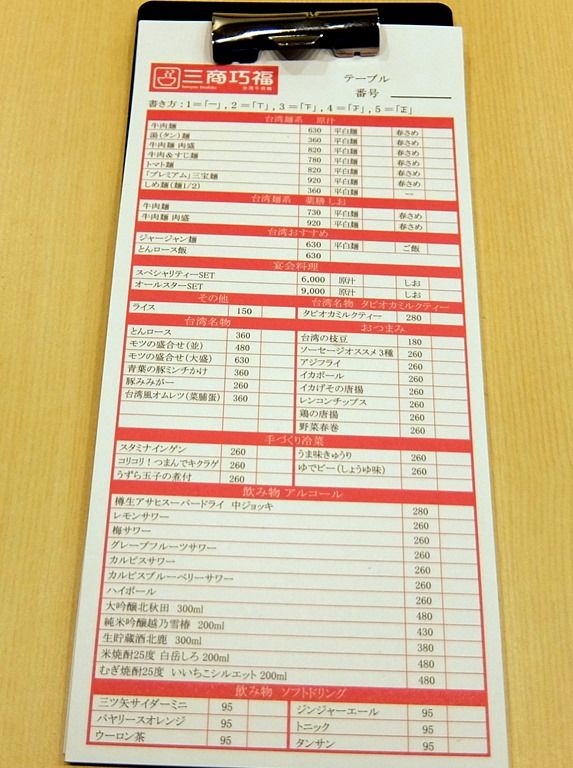 三商巧福
台湾牛肉麺
テーブル
番号
書き方:1=「一」, 2=「丅」, 3=「下」, 4=「正」, 5=「正」
台湾麺系 原汁
牛肉麺 630 平白麺 春さめ
湯(タン)麺 360 平白麺 春さめ
牛肉麺 肉盛 820 平白麺 春さめ
牛肉&すじ麺 780 平白麺 春さめ
トマト麺 820 平白麺 春さめ
「プレミアム」三宝麺 920 平白麺 春さめ
しめ麺(麺1/2) 360 平白麺 ー
台湾麺系 薬膳しお
牛肉麺 730 平白麺 春さめ
牛肉麺 肉盛 920 平白麺 春さめ
台湾おすすめ
ジャージャン麺 630 平白麺 ご飯
とんロース飯 630
宴会料理
スペシャリティーSET 6,000 原汁 しお
オールスターSET 9,000 原汁 しお
その他
ライス 150
台湾名物 タピオカミルクティー
タピオカミルクティー 280
台湾名物
とんロース 360
モツの盛合せ(並) 480
モツの盛合せ(大盛) 630
青葉の豚ミンチかけ 360
豚みみがー 260
台湾風オムレツ(菜脯蛋) 360
おつまみ
台湾の枝豆 180
ソーセージオススメ3種 260
アジフライ 260
イカボール 260
イカげその唐揚 260
レンコンチップス 260
鶏の唐揚 260
野菜春巻 260
手づくり冷菜
スタミナインゲン 260
コリコリ!つまんでキクラゲ 260
うずら玉子の煮付 260
うま味きゅうり 260
ゆでビー(しょうゆ味) 260
飲み物 アルコール
樽生アサヒスーパードライ 中ジョッキ 280
レモンサワー 260
梅サワー 260
グレープフルーツサワー 260
カルピスサワー 260
カルピスブルーベリーサワー 260
ハイボール 260
大吟醸北秋田 300ml 480
純米吟醸越乃雪椿 200ml 430
生貯蔵酒北鹿 300ml 380
米焼酎25度 白岳しろ 200ml 480
むぎ焼酎25度 いいちこシルエット 200ml 480
飲み物 ソフトドリング
三ツ矢サイダーミニ 95
バヤリースオレンジ 95
ウーロン茶 95
ジンジャーエール 95
トニック 95
タンサン 95